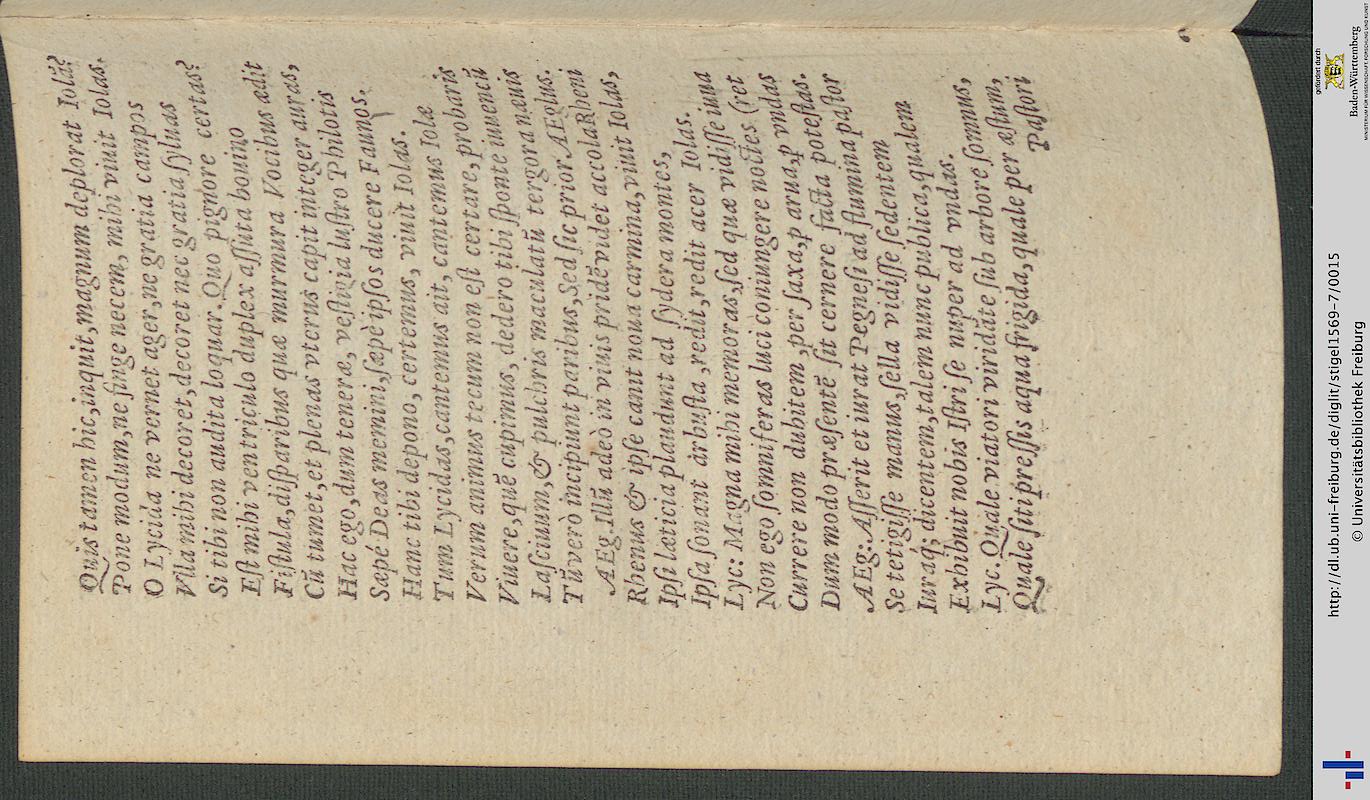 Quis tamen hic, inquit, magnum deplorat Iolã?
Pone modum, ne finge necem, mihi viuit Iolas.
O Lycida ne vernet ager, ne gratia campos
Vlla mihi decoret, decoret nec gratia syluas
Si tibi non audita loquar. Quo pignore certas?
Est mihi ventriculo duplex assuta bouino
Fistula, disparibus quæ murmura vocibus ædit
Cũ tumet, et plenas vterus capit integer auras,
Hac ego, dum teneræ, vestigia lustro Philotis
Sæpé Deas memini, sæpè ipsos ducere Faunos.
Hanc tibi depono, certemus, viuit Iolas.
Tum Lycidas, cantemus ait, cantemus Iolæ
Verum animus tecum non est certare, probaris
Viuere, quẽ cupimus, dedero tibi sponte iuuencũ
Lasciuum, & pulchris maculatũ tergora næuis
Tũ vero incipiunt paribus, Sed sic prior. AEglus.
AEg. Illũ adeò in viuis pridẽ videt accola Rheni
Rhenus & ipse canit noua carmina, viuit Iolas,
Ipsi læticia plaudunt ad sydera montes,
Ipsa sonant arbusta, redit, redit acer Iolas.
Lyc: Magna mihi memoras, sed quæ vidisse iuua
Non ego somniferas luci coniungere noctes (ret
Currere non dubitem, per saxa, p arua, p vndas
Dum modo præsentẽ sit cernere facta potestas.
AEg: Asserit et iurat Pegnesi ad flumina pastor
Se tetigisse manus, sella vidisse sedentem
Iuraq; dicentem, talem nunc publica, qualem
Exhibuit nobis Istri se nuper ad vndas.
Lyc. Quale viatori viridãte sub arbore somnus,
Quale siti pressis aqua frigida, quale per æstum,
Pastori
gefördert durch
Baden-Württemberg
MINISTERIUM FÜR WISSENSCHAFT, FORSCHUNG UND KUNST
http://dl.ub.uni-freiburg.de/diglit/stigel1569-7/0015
© Universitätsbibliothek Freiburg